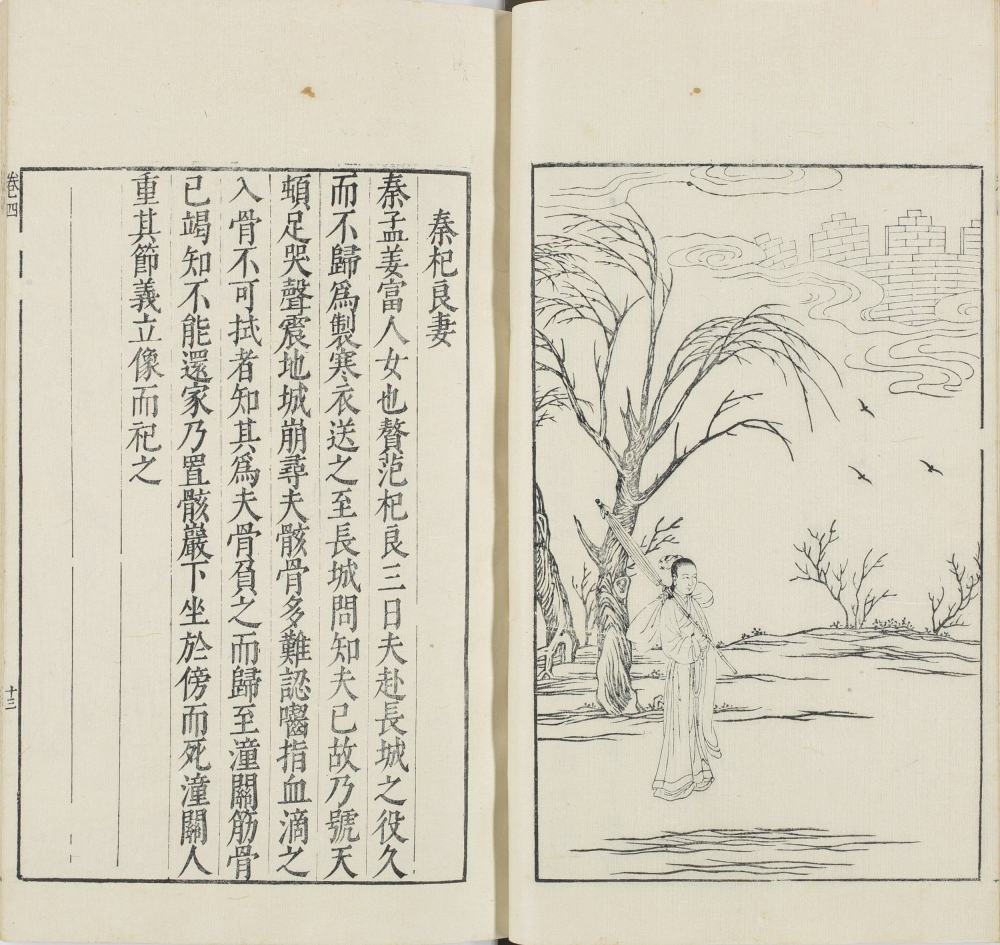 秦杞良妻
秦孟姜富人女也贅范杞良三日夫赴長城之役久
而不歸爲製寒衣送之至長城問知夫已故乃號天
頓足哭聲震地城崩尋夫骸骨多難認嚙指血滴之
入骨不可拭者知其爲夫骨負之而歸至潼關筋骨
已竭知不能還家乃置骸巖下坐於傍而死潼關人
重其節義立像而祀之
卷四
十三